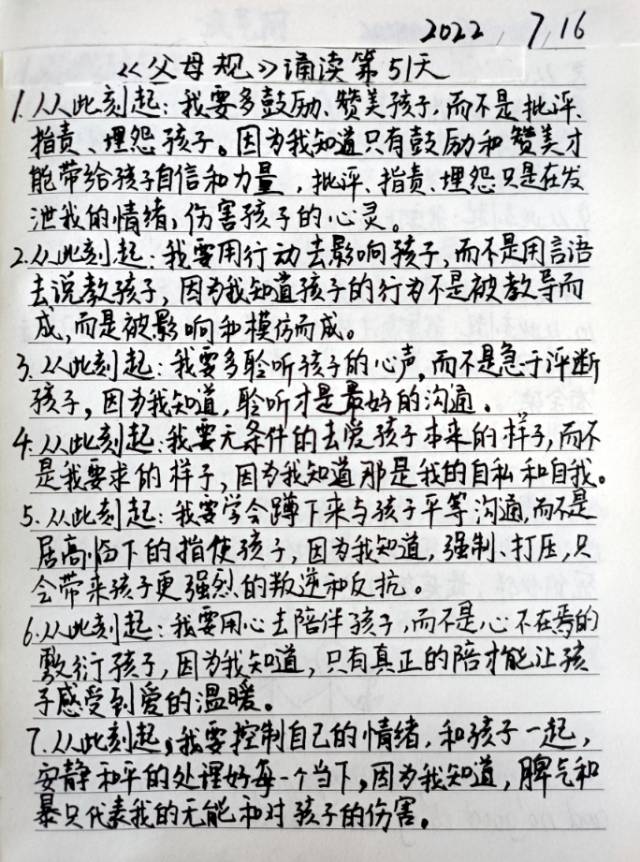 2022,7,16
《父母规》诵读第51天
1.从此刻起:我要多鼓励、赞美孩子,而不是批评、
指责、埋怨孩子。因为我知道只有鼓励和赞美才
能带给孩子自信和力量,批评、指责、埋怨只是在发
泄我的情绪,伤害孩子的心灵。
2.从此刻起:我要用行动去影响孩子,而不是用言语
去说教孩子,因为我知道孩子的行为不是被教导而
成,而是被影响和模仿而成。
3.从此刻起:我要多聆听孩子的心声,而不是急于评断
孩子,因为我知道,聆听才是最好的沟通。
4.从此刻起:我要无条件的去爱孩子本来的样子,而不
是我要求的样子,因为我知道那是我的自私和自我。
5.从此刻起:我要学会蹲下来与孩子平等沟通,而不是
居高临下的指使孩子,因为我知道,强制、打压,只
会带来孩子更强烈的叛逆和反抗。
6.从此刻起:我要用心去陪伴孩子,而不是心不在焉的
敷衍孩子,因为我知道,只有真正的陪才能让孩
子感受到爱的温暖。
7.从此刻起,我要控制自己的情绪,和孩子一起,
安静和平的处理好每一个当下,因为我知道,脾气和
暴只代表我的无能和对孩子的伤害。